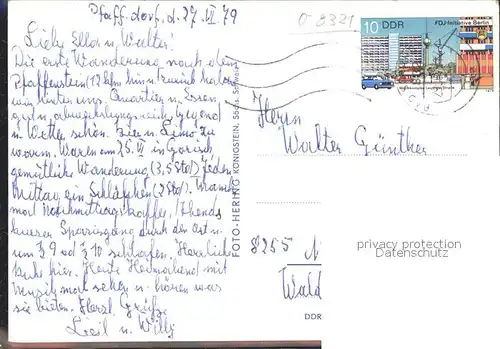 Pfaffdorf. d. 27. VI 79
Liebe Ella u. Walter!
Die erste Wanderung nach dem
Pfaffenstein (12 km hin u. zurück haben
wir hinter uns Quartier u. Essen
gut u. abwechslungsreich, Gegend
u. Wetter schön. Bier u. Limo zu
warm. Waren am 25. VI in Gorisch
gemütliche Wanderung (3,5 Std) Jeden
Mittag ein Schläfchen (2 Std).
mal Nachmittagskaffee, Abends
kurzer Spaziergang durch den Ort u.
um 9 od 10 schlafen. Herrliche
Ruhe hier. Heute Heimabend mit
Musik mal sehen u. hören was
sie bieten. Herzl. Grüße
Liesl u. Willy
FOTO-HERING KÖNIGSTEIN, Sächs. Schweiz
0-8321
10 DDR
FDJ-Initiative Berlin
Herrn
Walter Günther
8255
Wald
privacy protection
Datenschutz
DDR